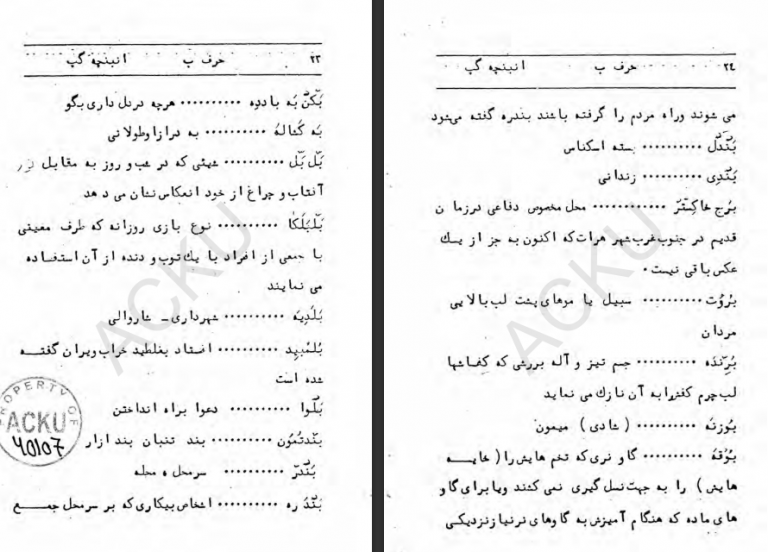 ۲۳ حرف ب انبنچه گپ
بُکنّ به بادوه .......... هرچه در دل داری بگو
به کُتالهُ .......... به دراز اوطولانی
بَلّ بَلّ .......... شیئی که در شب و روز به مقابل نور
آفتاب و چراغ از خود انعکاس نشان می دهد
بَلّبَلَکا .......... نوع بازی روزانه که طرف معینی
با جمعی از افراد با یك توپ و دنده از آن استفاده
می نمایند
بَلَدِیهَ .......... شهرداری - شاروالی
بلمبید .......... افتاد بغلطید خراب ویران گفته
شده است
بَلّوا .......... دعوا براه انداختن
بندتمُون .......... بند تنبان بند ازار
بنَدَرّ .......... سر محل ه محله
بَنّدَ ره .......... اشخاص بیکاری که بر سر محل جمع
PROPERTY OF
ACKU
40107
ACKU
۲٤ حرف ب انبنچه گپ
می شوند وراه مردم را گرفته باشند بندره گفته میشود
بَنّدَلّ .......... بسته اسکناس
بَنّدِی .......... زندانی
برج خاکِستَرّ .......... محل مخصوص دفاعی درزما ن
قدیم در جنوب غرب شهر هرات که اکنون به جز از یك
عکس باقی نیست .
بروُت .......... سبیل یا موهای پشت لب بالایی
مردان
بُرّندَه .......... جسم تیز و آله بررشی که کفاشها
لب چرم کفش را به آن نازك می نماید
بوُزنهَ .......... ( شادی ) میمون
بوُقهَ .......... گاو نری که تخم هایش را ( خایه
هایش ) را به جهت نسل گیری نمی کنند ویا برای گاو
های ماده که هنگام آمیزش به گاوهای نر نیاز نزدیکی
ACKU